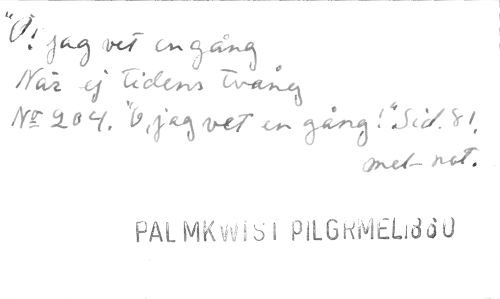 "O! jag vet en gång
När ej tidens tvång
No 204. "O, jag vet en gång!" Sid. 81.
mel- not.
PALMKWIST PILGRMEL.1880